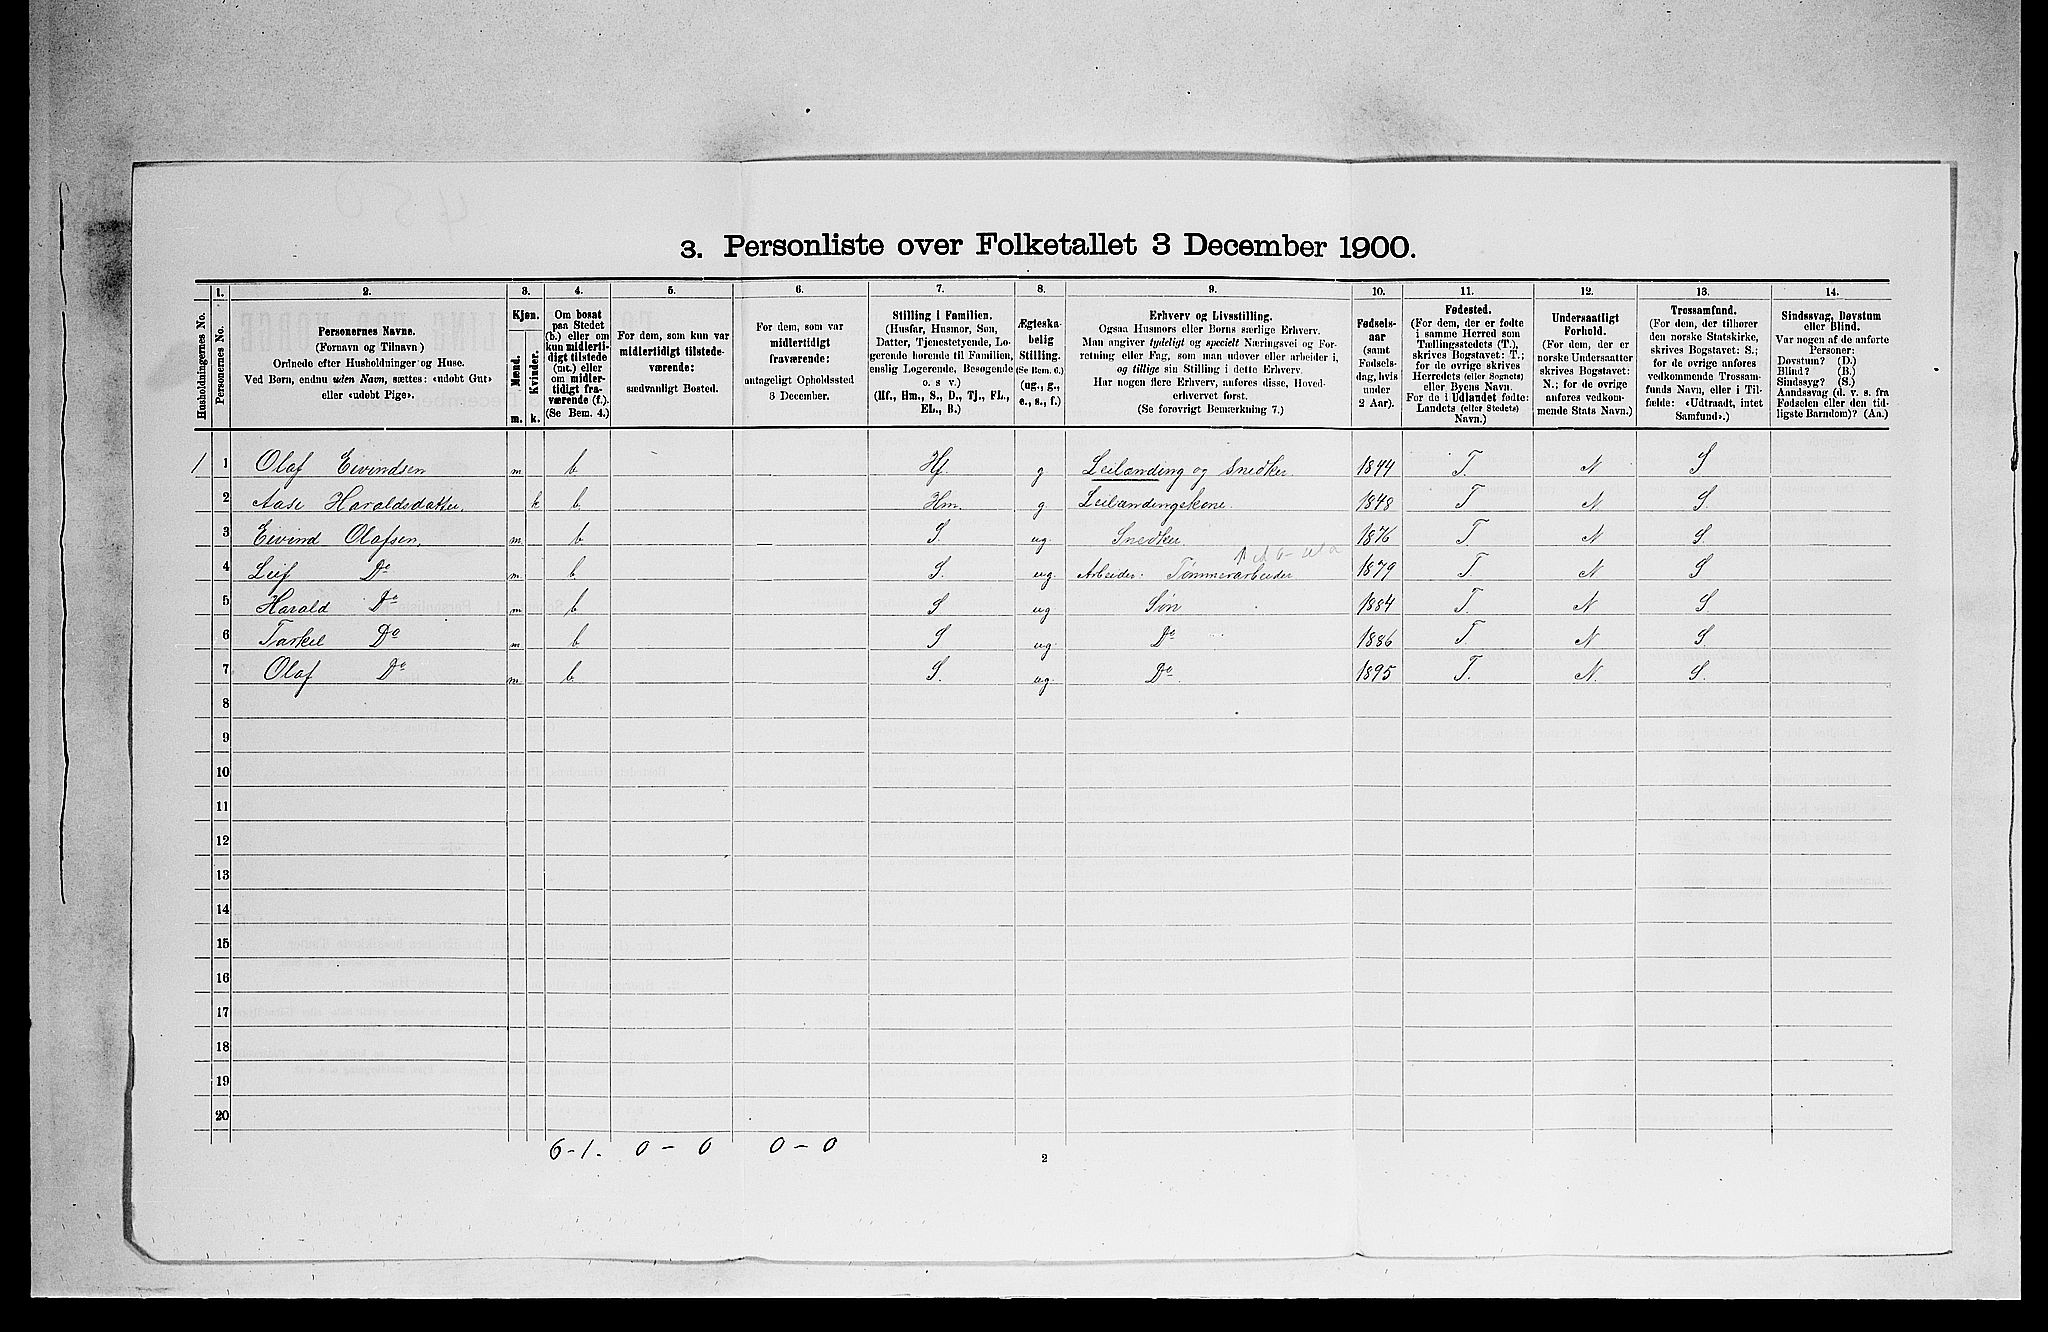 3. Personliste over Folketallet 3 December 1900.
1. 2. 3. 4. 5. 6. 7. 8. 9. 10. 11. 12. 13. 14.
Husholdningernes No.
Personernes No.
Personernes Navne.
(Fornavn og Tilnavn)
Ordnede efter Husholdninger og Huse.
Ved Børn, endnu uden Navn, sættes: «udøbt Gut»
eller «udøbt Pige».
Kjøn.
Mænd.
Kvinder.
m. k.
Om bosat
paa Stedet
(b.) eller om
kun midlerti-
digt tilstede
(mt.) eller
om midler-
tidigt fra-
værende (f.).
(Se Bem. 4.)
For dem, som kun var
midlertidigt tilstede-
værende:
sædvanligt Bosted.
For dem, som var
midlertidigt
fraværende:
antageligt Opholdssted
3 December.
Stilling i Familien.
(Husfar, Husmor, Søn,
Datter, Tjenestetyende, Lo-
gerende hørende til Familien,
enslig Logerende, Besøgende
o. s v.)
(Hf., Hm., S., D., Tj., FL.,
EL., B.)
Ægteska-
belig
Stilling.
(Se Bem. 6.)
(ug., g.,
e., s., f.)
Erhverv og Livsstilling.
Ogsaa Husmors eller Børns særlige Erhverv.
Man angiver tydeligt og specielt Næringsvei og For-
retning eller Fag, som man udøver eller arbeider i,
og tillige sin Stilling i dette Erhverv.
Har nogen flere Erhverv, anføres disse, Hoved-
erhvervet først.
(Se forøvrigt Bemerkning 7.)
Fødsels-
aar
(samt
Fødsels-
dag, hvis
under
2 Aar).
Fødested.
(For dem, der er fødte
i samme Herred som
Tællingsstedets (T.),
skrives Bogstavet: T.;
for de øvrige skrives
Herredets (eller Sognets)
eller Byens Navn.
For de i Udlandet fødte:
Landets (eller Stedets)
Navn.)
Undersaatligt
Forhold.
(For dem, der er
norske Undersaatter
skrives Bogstavet:
N.; for de øvrige
anføres vedkom-
mende Stats Navn.)
Trossamfund.
(For dem, der tilhører
den norske Statskirke,
skrives Bogstavet: S.;
for de øvrige anføres
vedkommende Trossam-
funds Navn, eller i Til-
fælde: «Udtraadt, intet
Samfund».)
Sindssvag, Døvstum
eller Blind.
Var nogen af de anførte
Personer:
Døvstum? (D.)
Blind? (B.)
Sindssyg? (S.)
Aandssvag (d. v. s. fra
Fødselen eller den tid-
ligste Barndom)? (Aa.)
1 1 Olaf Eivindsen m b Hf. g Leilænding og Snedker. 1844 T. N S
2 Aase Haraldsdatter. k b. Hm. g Leilændingskone. 1848 T N S.
3 Eivind Olafsen. m. b S. ug. Snedker 1876 T. N S.
4 Leif Do m b S. ug. Arbeider. Tømmerarbeider 1879 T. N. S
5 Harald Do m b S ug Søn 1884 T. N S.
6 Tarkel Do m b S ug. Do 1886 T. N S.
7 Olaf Do m. b S. ug. Do. 1895 T. N. S.
8
9
10
11
12
13
14
15
16
17
18
19
20
6-1. 0 - 0 0 - 0
2